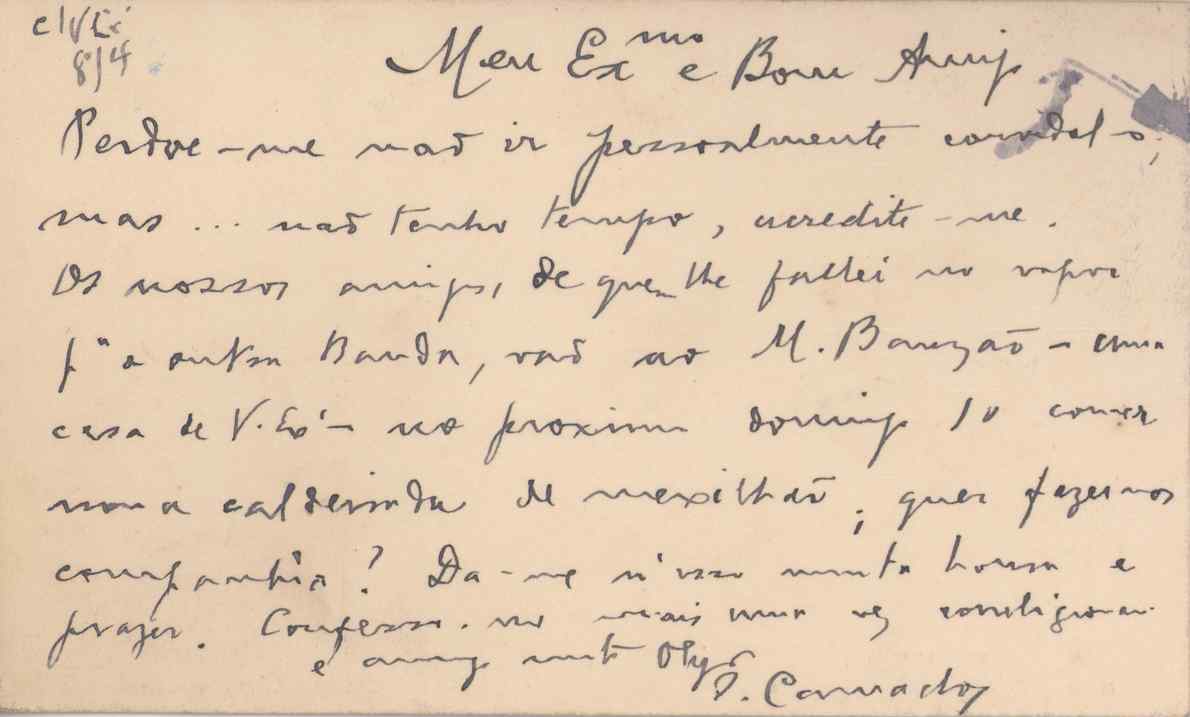 8/4
Meu Exmo e Bom Amigo
Perdoe-me não ir pessoalmente convidal-o,
mas ... não tenho tempo, acredite-me.
Os nossos amigos, de quem lhe fallei no vapor
pª a outra Banda, vão ao M. Banzão - uma
casa de V. Exª - no proximo domingo 10 comer
uma caldeirada de mexilhão; quer fazer-nos
companhia? Da-me n'isso muita honra e
prazer. Confesso-me mais uma vez
e amigo mto Obgo
J. Camachos